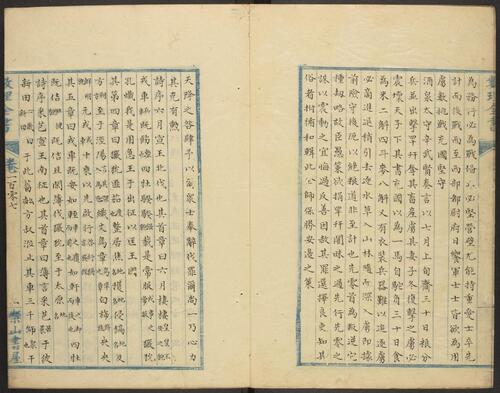 為務行必為戰備止必堅營壁尤能持重愛士卒先
計而後戰而至西部都尉府日饗軍士士皆欲為用
虜數挑戰充國堅守
酒泉太守辛武賢奏言以七月上旬齎三十日粮分
兵並出擊䍐幵奪其畜產虜其妻子冬復擊之虜必
震壞天子下其書充國以為一馬自駝負三十日食
為米二斛四斗麥八斛又有衣裝兵器難以追逐虜
必商進退稍引去逐水草入山林隨而深入虜即據
前險守後阨以絕粮道非至計也先零首為叛逆它
種刼略故臣愚策欲捐䍐幵闇昧之過先行先零之
誅以震動之宜悔過反善因赦其罪選擇良吏知其
俗者拊循和輯此全師保勝安邊之策
天降之咎肆予以爾眾士奉辭伐罪爾尚一乃心力
其克有勲
詩序六月宣王北伐也其首章曰六月棲棲皇皇不安之貌
戎車既飭四牡騤騤強貌載是常服戎事之服玁狁
孔熾我是用急王于出征以匡王國
其第四章曰玁狁匪茹度整居焦穫地名侵鎬地名及
方地名至于涇陽織文鳥章白旆央央
鮮明貌元戎十乘以先啟行
其五章曰戎車既安如輊如軒四牡
既佶既佶且閑薄伐玁狁至于太原地名
詩序采芑宣王南征也其首章曰薄言采芑于彼
新田于此菑畝方叔涖止其車三千師干
卷一百零七
樂山書屋